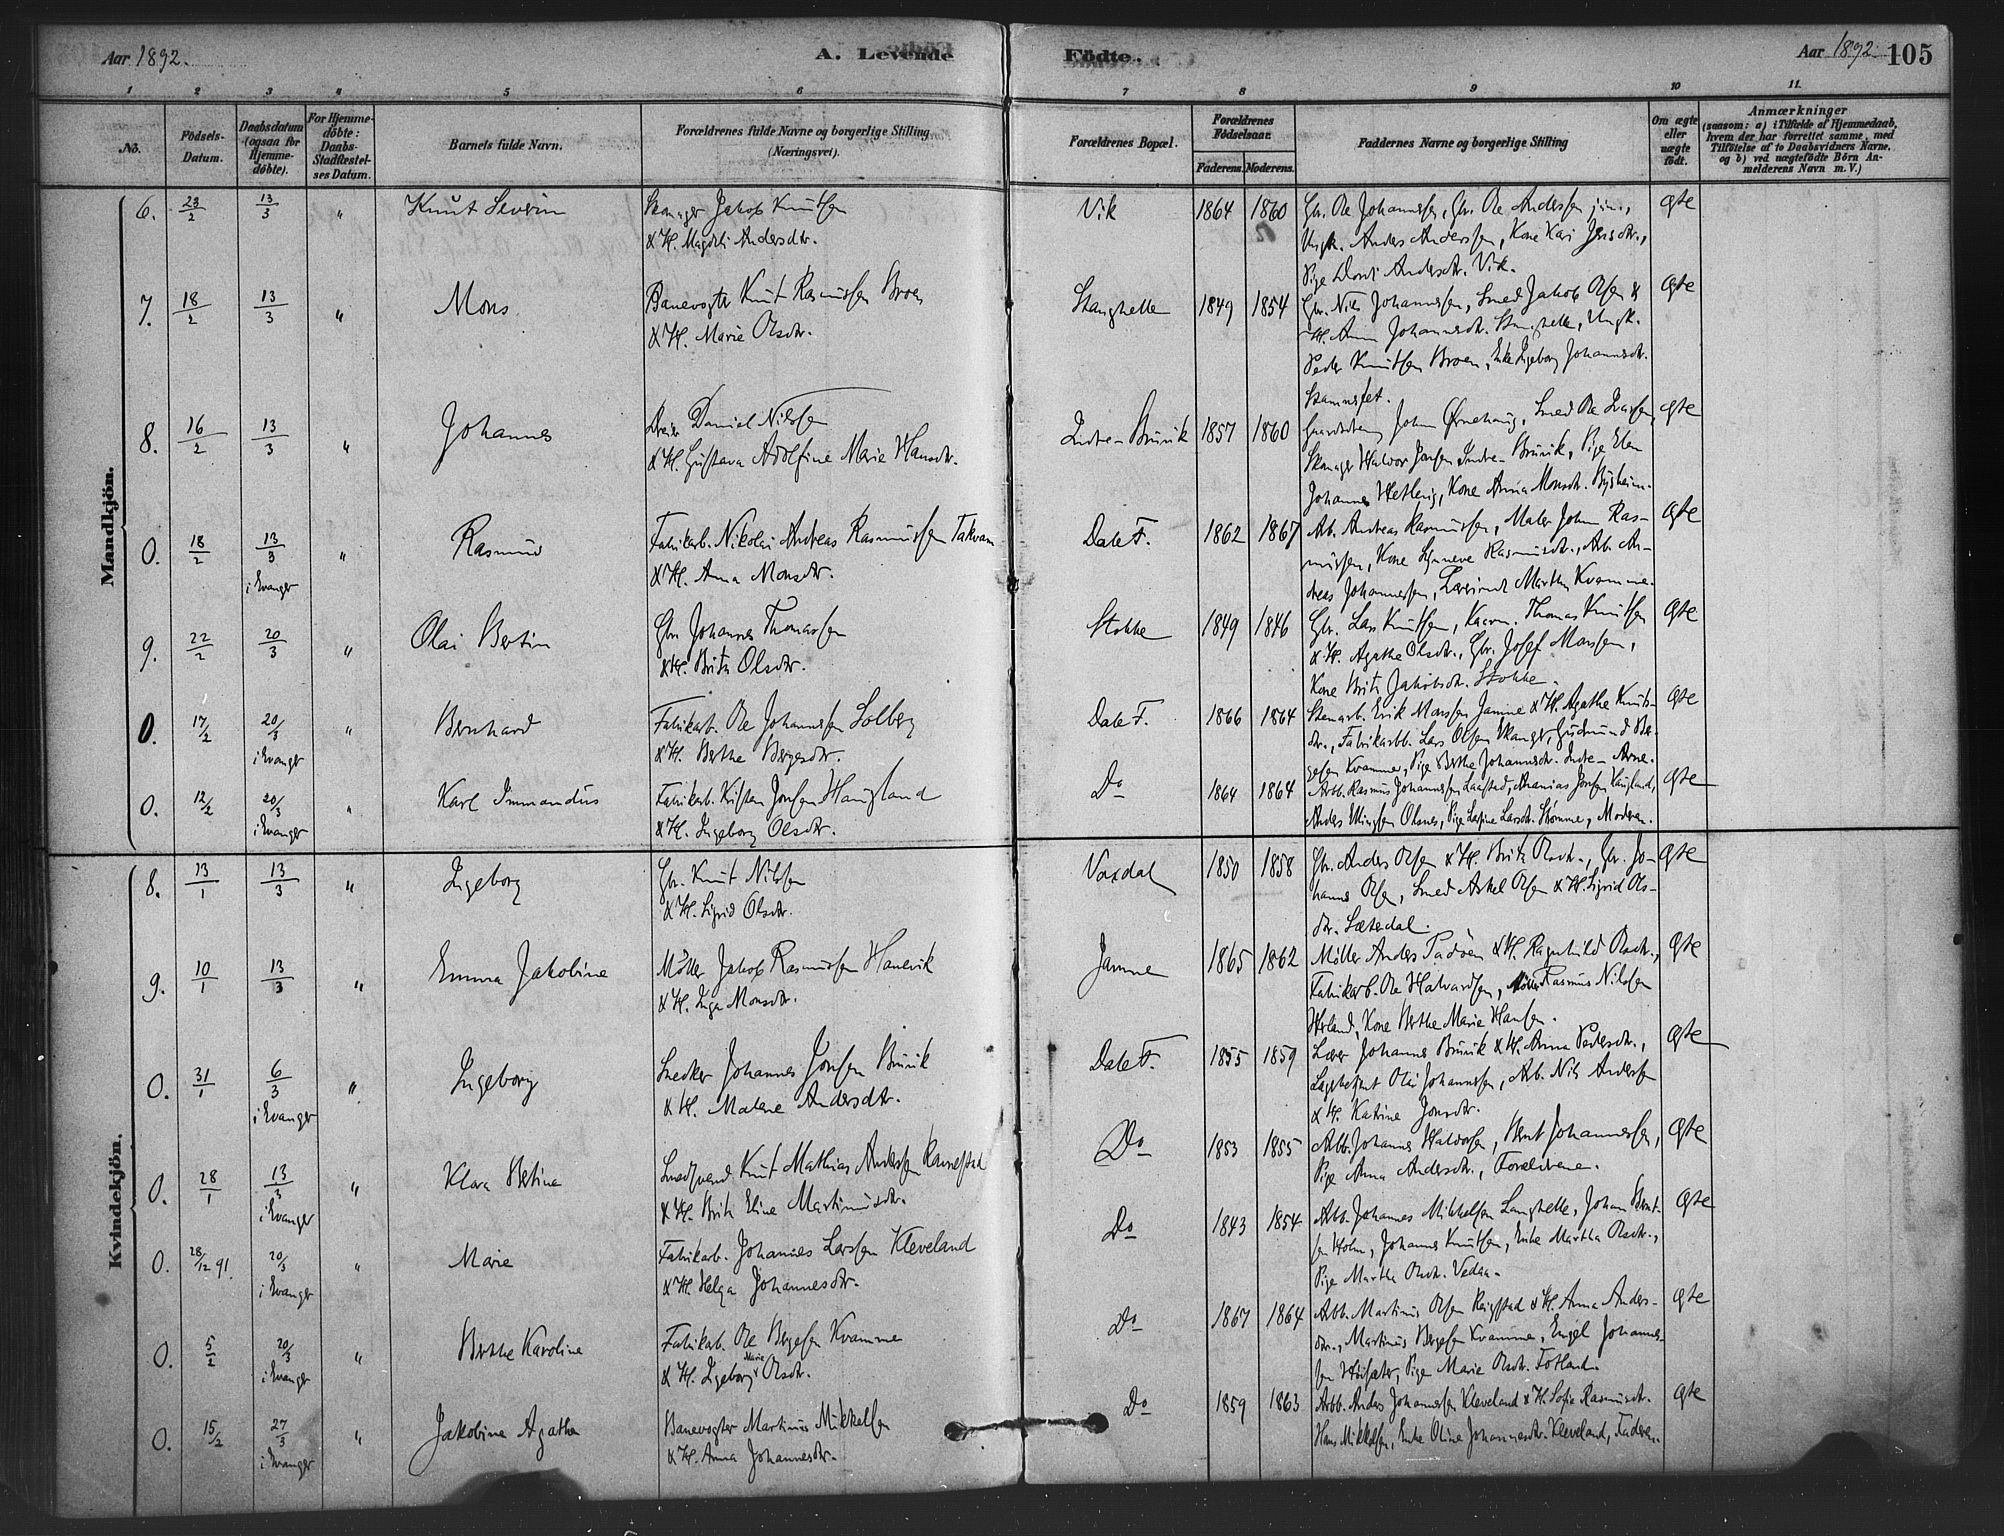 Aar 1892.
A. Levende
Födte.
Aar 1892.
105
1 2 3 4 5 6 7 8 9 10 11.
No.
Födsels-Datum.
Daabsdatum (ogsaa for Hjemme-döbte).
For Hjemme-döbte: Daabs-Stadfæstel-ses Datum.
Barnets fulde Navn.
Forældrenes fulde Navne og borgerlige Stilling (Næringsvei).
Forældrenes Bopæl.
Forældrenes Födselsaar.
Faderens. Moderens.
Faddernes Navne og borgerlige Stilling
Om ægte eller uægte födt.
Anmærkninger
(saasom: a) i Tilfælde af Hjemmedaab,
hvem der har forrettet samme, med
Tilföielse af to Daabsvidners Navne,
og b) ved uægtefödte Börn An-
melderens Navn m.V.)
Mandkjön.
6. 23/2 13/3 " Knut Severin
Jakob Knutsen
& H. Magdli Andersdtr.
Vik 1864 1860
Gbr. Ole Johannessen, Gbr. Ole Anderssen jun.,
Ungk. Anders Anderssen, Kone Kari Jensdtr.,
Pige Dorti Andersdtr. Vik.
ægte
7. 18/2 13/3 " Mons
Banevogter Knut Rasmussen Broen
& H. Marie Olsdtr.
Stanghelle 1849 1854
Gbr. Nils Johannessen, Smed Jakob Olsen &
H. Anna Johannesdtr. Stanghelle, Ungk.
Peder Knutsen Broen, Enke Ingeborg Johannesdtr.
ægte
8. 16/2 13/3 " Johannes
Dreier Daniel Nilssen
& H. Gustava Adolfine Marie Hansdtr.
Indre-Bruvik 1857 1860
John Ørnehaug, Smed Ole Ivarsen,
Halvor Jonsen Indre-Bruvik, Pige Elen
Johannes Hetlevig, Kone Anna Monsdtr.
ægte
0. 18/2 13/3 i Evanger " Rasmus
Fabrikarb. Nikolai Andreas Rasmussen Takvam
& H. Anna Monsdtr.
Dale F. 1862 1867
Arb. Andreas Rasmussen, Maler Johan Ras-
mussen, Kone Synneve Rasmusdtr., Arb. An-
dreas Johannessen, Martha Kvamme.
ægte
9. 22/2 20/3 " Olai Bertin
Gbr Johannes Thomassen
& H. Brita Olsdtr.
Stokke 1849 1846
Gbr. Lars Knutsen, Kaarm. Thomas Knutsen
& H. Agathe Olsdtr., Gbr. Josef Monsen,
Kone Brita Jakobsdtr. Stokke.
ægte
0. 17/2 20/3 i Evanger " Bernhard
Fabrikarb. Ole Johannessen Solberg
& H. Berthe Bergesdtr.
Dale F. 1866 1864
Stenarb. Erik Monsen Jamne & H. Agathe Knuts-
dtr., Fabrikarbb. Lars Olsen Gudmund Ber-
gesen Kvamme, Pige Berthe Johannesdtr. Indre-Arne.
ægte
0. 12/2 20/3 i Evanger " Karl Immandus
Fabrikarb. Kristen Jonsen Haugland
& H. Ingeborg Olsdtr.
Do 1864 1864
Arbb. Rasmus Johannessen Ananias Jonsen Haugland,
Anders Olsnes, Pige Larsdtr. Moderen.
ægte
Kvindekjön.
8. 13/1 13/3 " Ingeborg
Gbr. Knut Nilssen
& H. Sigrid Olsdtr.
Vaxdal 1850 1858
Gbr. Anders Olsen & H. Brita Olsdtr., Gbr. Jo-
hannes Olsen, Smed Askel Olsen & H. Sigrid Ols-
dtr. Sætredal.
ægte
9. 10/1 13/3 " Emma Jakobine
Møller Jakob Rasmussen Hanevik
& H. Inga Monsdtr.
Jamne 1865 1862
Møller Anders & H. Ragnhild Olsdtr.,
Fabrikarb. Ole Halvardsen, Møller Rasmus Nilssen
Herland, Kone Berthe Marie Hansen.
ægte
0. 31/1 6/3 i Evanger " Ingeborg
Snedker Johannes Jonsen Bruvik
& H. Malene Andersdtr.
Dale F. 1855 1859
Lærer Johannes Bruvik & H. Anna Pedersdtr.,
Olai Johannessen, Arb. Nils Andersen
& H. Katrine Jonsdtr.
ægte
0. 28/1 13/3 i Evanger " Klara Betina
Smedsvend Knut Mathias Andersen Ravnestad
& H. Brita Eline Martinusdtr.
Do 1853 1855
Arbb. Johannes Halvorsen, Bernt Johannessen,
Pige Anna Andersdtr., Forældrene.
ægte
0. 28/12 91. 20/3 i Evanger " Marie
Fabrikarb. Johannes Larssen Kleveland
& H. Helga Johannesdtr.
Do 1843 1854
Arbb. Johannes Mikkelsen Langhelle, Johan Bernt-
sen Holm, Johannes Knutsen, Enke Martha Olsdtr.,
Pige Martha Olsdtr. Vedaa.
ægte
0. 5/2 20/3 i Evanger " Berthe Karoline
Fabrikarb. Ole Bergesen Kvamme
& H. Ingeborg Marie Olsdtr.
Do 1867 1864
Arbb. Martinus Olsen Reigstad & H. Anna Anders-
dtr., Martinus Bergesen Kvamme, Engel Johannes-
sen Høisæter, Pige Marie Olsdtr. Fotland.
ægte
0. 15/2 27/3 i Evanger " Jakobine Agatha
Banevogter Martinus Mikkelsen
& H. Anna Johannesdtr.
Do 1859 1863
Arbb. Anders Johannessen Kleveland & H. Sofie Rasmusdtr.
Hans Mikkelsen, Enke Oline Johannesdtr. Kleveland, Faderen.
ægte